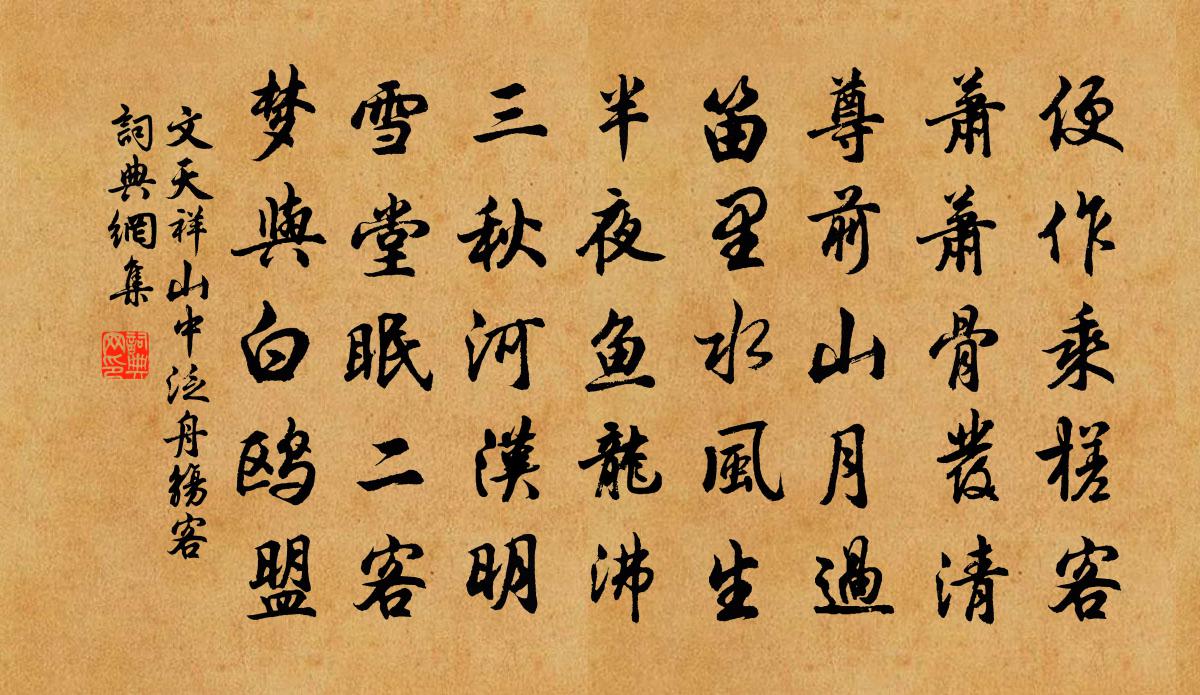 便作乘槎客
萧萧骨發清
尊前山月過
笛里水風生
半夜鱼龍沸
三秋河漢明
雪堂眠二客
梦與白鸥盟
文天祥山中泛舟觴客
詞典網集
詞典
网印